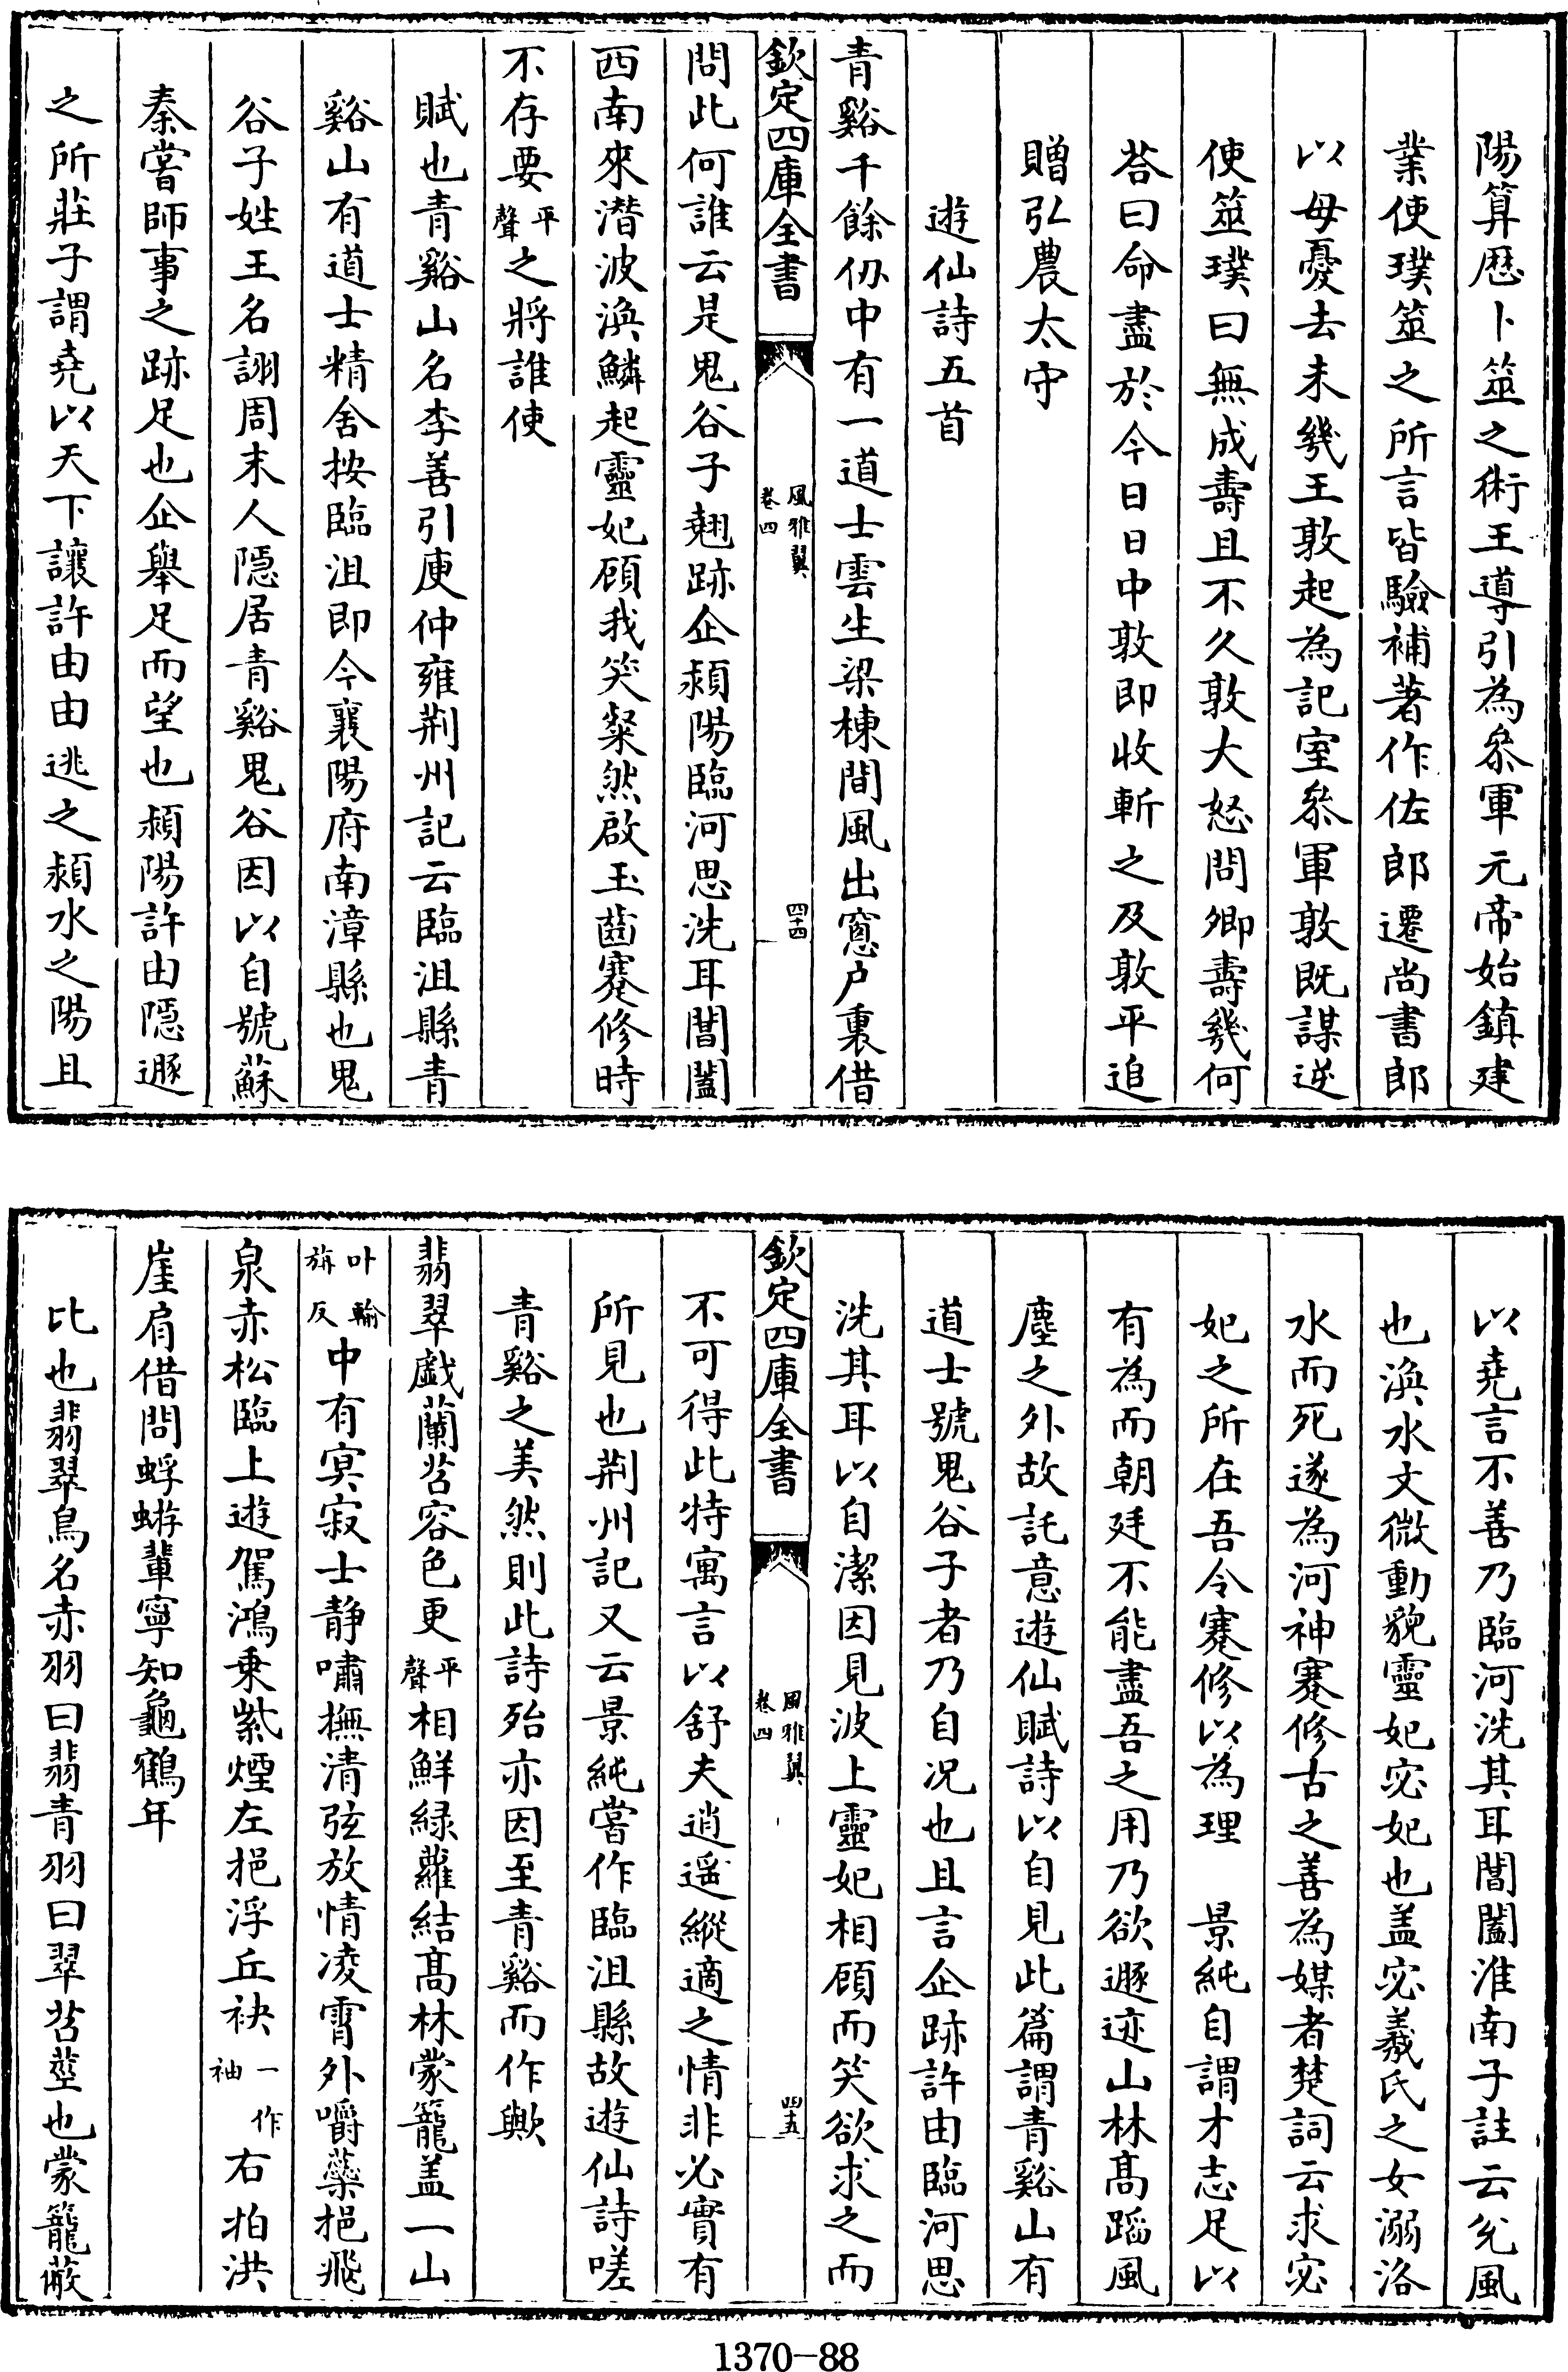 陽算厯卜筮之術王導引為叅軍元帝始鎮建
業使璞筮之所言皆驗補著作佐郎遷尚書郎
以母憂去未幾王敦起為記室叅軍敦既謀逆
使筮璞曰無成壽且不久敦大怒問卿壽幾何
荅曰命盡於今日日中敦即收斬之及敦平追
贈弘農太守
遊仙詩五首
青谿千餘仭中有一道士雲生梁棟間風出窻户裏借
欽定四庫全書
風雅翼
卷四
四十四
問此何誰云是鬼谷子翹跡企潁陽臨河思洗耳閶闔
西南來潛波渙鱗起靈妃顧我笑粲然啟玉齒蹇修時
不存要平聲之將誰使
賦也青谿山名李善引庾仲雍荆州記云臨沮縣青
谿山有道士精舍按臨沮即今襄陽府南漳縣也鬼
谷子姓王名詡周末人隱居青谿鬼谷因以自號蘇
秦嘗師事之跡足也企舉足而望也潁陽許由隱遯
之所莊子謂堯以天下讓許由由逃之潁水之陽且
以堯言不善乃臨河洗其耳閶闔淮南子註云兊風
也渙水文微動貌靈妃宓妃也盖宓羲氏之女溺洛
水而死遂為河神蹇修古之善為媒者楚詞云求宓
妃之所在吾令蹇修以為理　景純自謂才志足以
有為而朝廷不能盡吾之用乃欲遯迹山林高蹈風
塵之外故託意遊仙賦詩以自見此篇謂青谿山有
道士號鬼谷子者乃自况也且言企跡許由臨河思
洗其耳以自潔因見波上靈妃相顧而笑欲求之而
欽定四庫全書
風雅翼
卷四
四十五
不可得此特寓言以舒夫逍遥縱適之情非必實有
所見也荆州記又云景純嘗作臨沮縣故遊仙詩嗟
青谿之美然則此詩殆亦因至青谿而作歟
翡翠戯蘭苕容色更平聲相鮮緑蘿結髙林蒙籠盖一山
叶輸旃反中有冥寂士静嘯撫清弦放情凌霄外嚼蘂挹飛
泉赤松臨上遊駕鴻乗紫煙左挹浮丘袂一作袖右拍洪
崖肩借問蜉蝣輩寧知龜鶴年
比也翡翠鳥名赤羽曰翡青羽曰翠苕莖也蒙籠蔽
1370-88